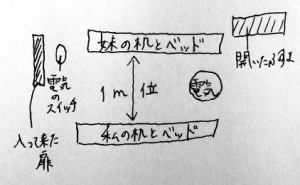 妹の机とベッド
開いたふすま
電気
の
スイッチ
1m位
電気
入って来た
扉
私の机とベッド